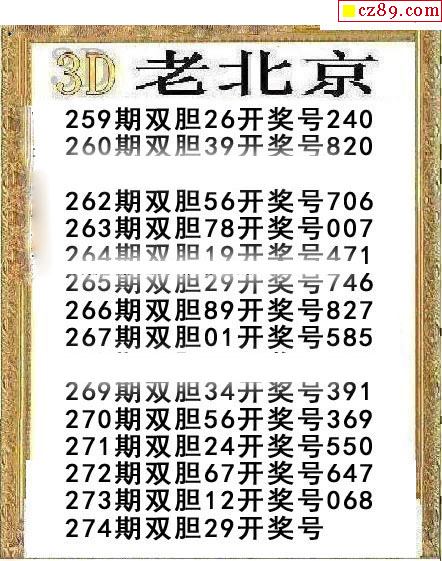 cz89.com
3D 老北京
259期双胆26开奖号240
260期双胆39开奖号820
262期双胆56开奖号706
263期双胆78开奖号007
264期双胆19开奖号471
265期双胆29开奖号746
266期双胆89开奖号827
267期双胆01开奖号585
269期双胆34开奖号391
270期双胆56开奖号369
271期双胆24开奖号550
272期双胆67开奖号647
273期双胆12开奖号068
274期双胆29开奖号